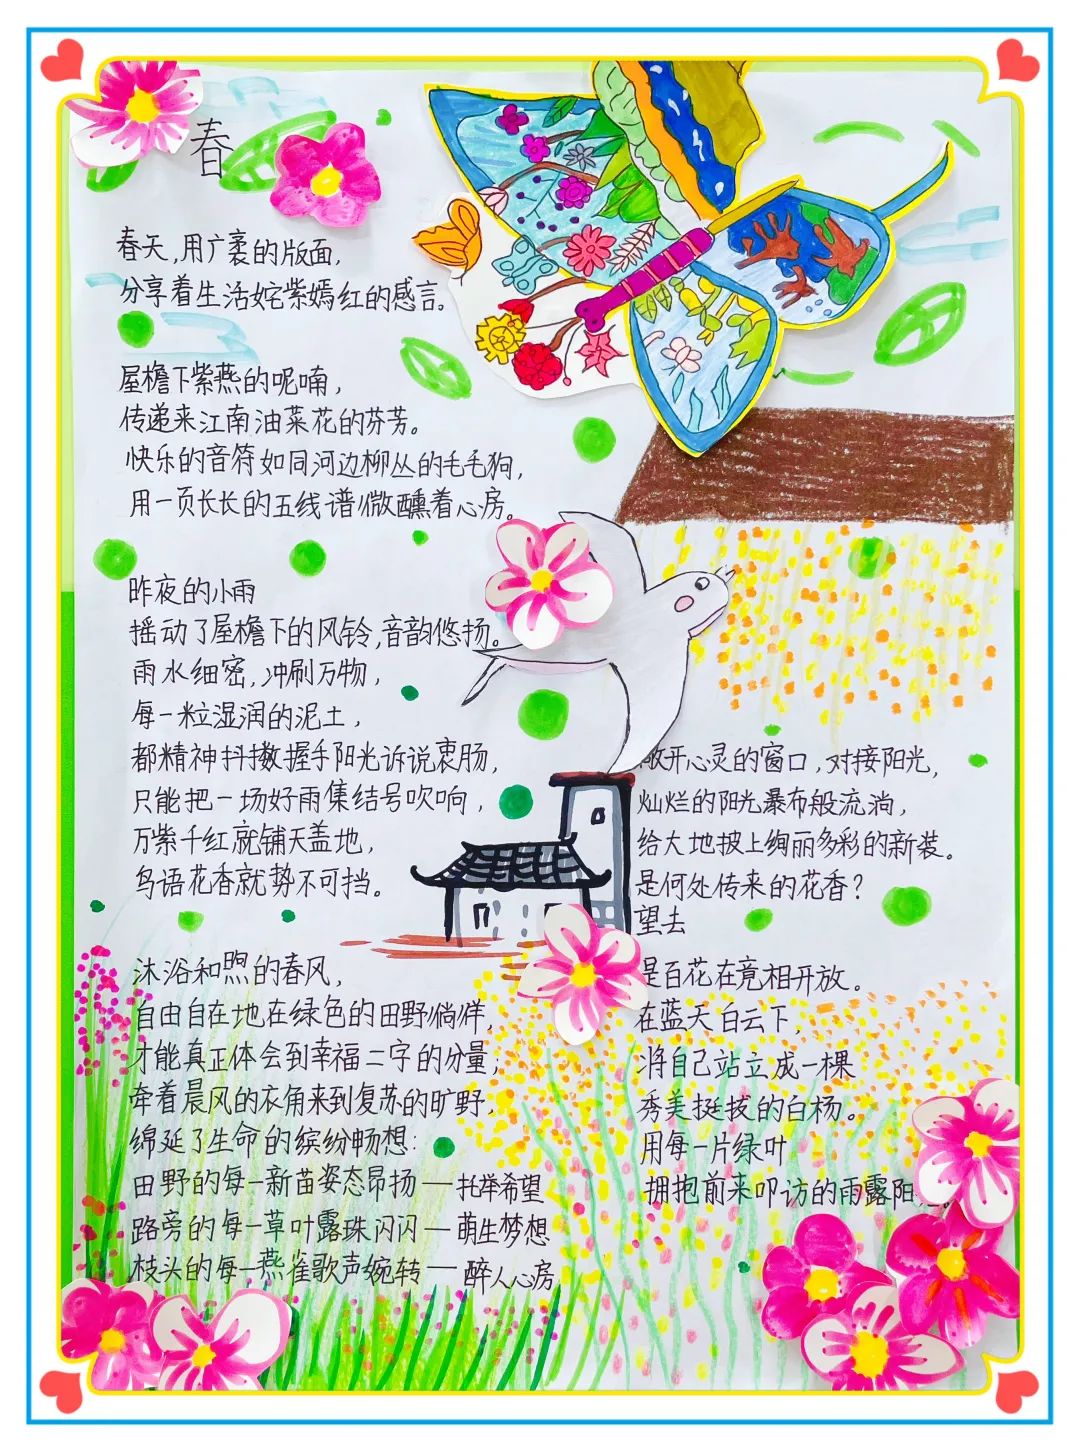 春
春天,用广袤的版面,
分享着生活姹紫嫣红的感言。
屋檐下紫燕的呢喃,
传递来江南油菜花的芬芳。
快乐的音符如同河边柳丛的毛毛狗,
用一页长长的五线谱微醺着心房。
昨夜的小雨
摇动了屋檐下的风铃,音韵悠扬。
雨水细密,冲刷万物,
每一粒湿润的泥土,
都精神抖擞握手阳光诉说衷肠,
只能把一场好雨集结号吹响,
万紫千红就铺天盖地,
鸟语花香就势不可挡。
沐浴和煦的春风,
自由自在地在绿色的田野徜徉,
才能真正体会到幸福二字的分量;
牵着晨风的衣角来到复苏的旷野,
绵延了生命的缤纷畅想:
田野的每一新苗姿态昂扬——托举希望
路旁的每一草叶露珠闪闪——萌生梦想
枝头的每一燕雀歌声婉转——醉人心房
敞开心灵的窗口,对接阳光,
灿烂的阳光瀑布般流淌,
给大地披上绚丽多彩的新装。
是何处传来的花香?
望去
是百花在竞相开放。
在蓝天白云下,
将自己站立成一棵
秀美挺拔的白杨。
用每一片绿叶
拥抱前来叩访的雨露阳